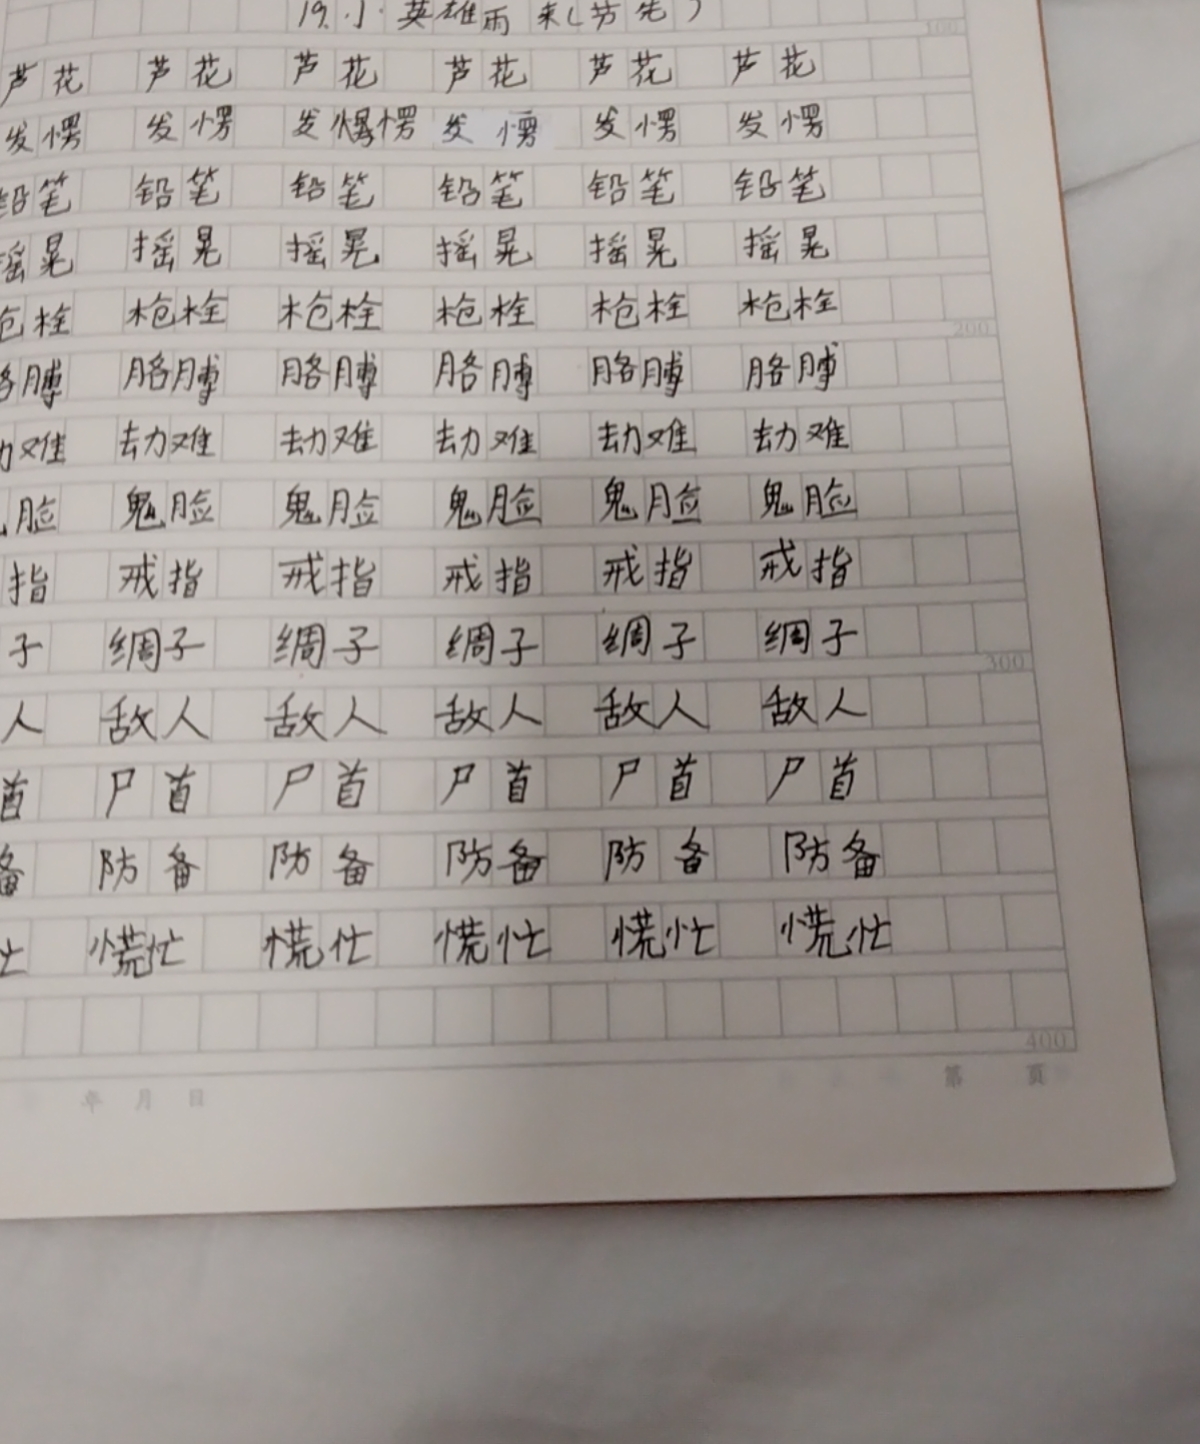 19.小英雄雨来(节先)
100
芦花 芦花 芦花 芦花 芦花 芦花
发愣 发愣 发愣 发愣 发愣 发愣
铅笔 铅笔 铅笔 铅笔 铅笔 铅笔
摇晃 摇晃 摇晃 摇晃 摇晃 摇晃
枪栓 枪栓 枪栓 枪栓 枪栓 枪栓
200
胳膊 胳膊 胳膊 胳膊 胳膊 胳膊
劫难 劫难 劫难 劫难 劫难 劫难
脸 鬼脸 鬼脸 鬼脸 鬼脸 鬼脸
指 戒指 戒指 戒指 戒指 戒指
子 绸子 绸子 绸子 绸子 绸子
300
人 敌人 敌人 敌人 敌人 敌人
首 尸首 尸首 尸首 尸首 尸首
备 防备 防备 防备 防备 防备
忙 慌忙 慌忙 慌忙 慌忙 慌忙
400
年 月 日 第 页